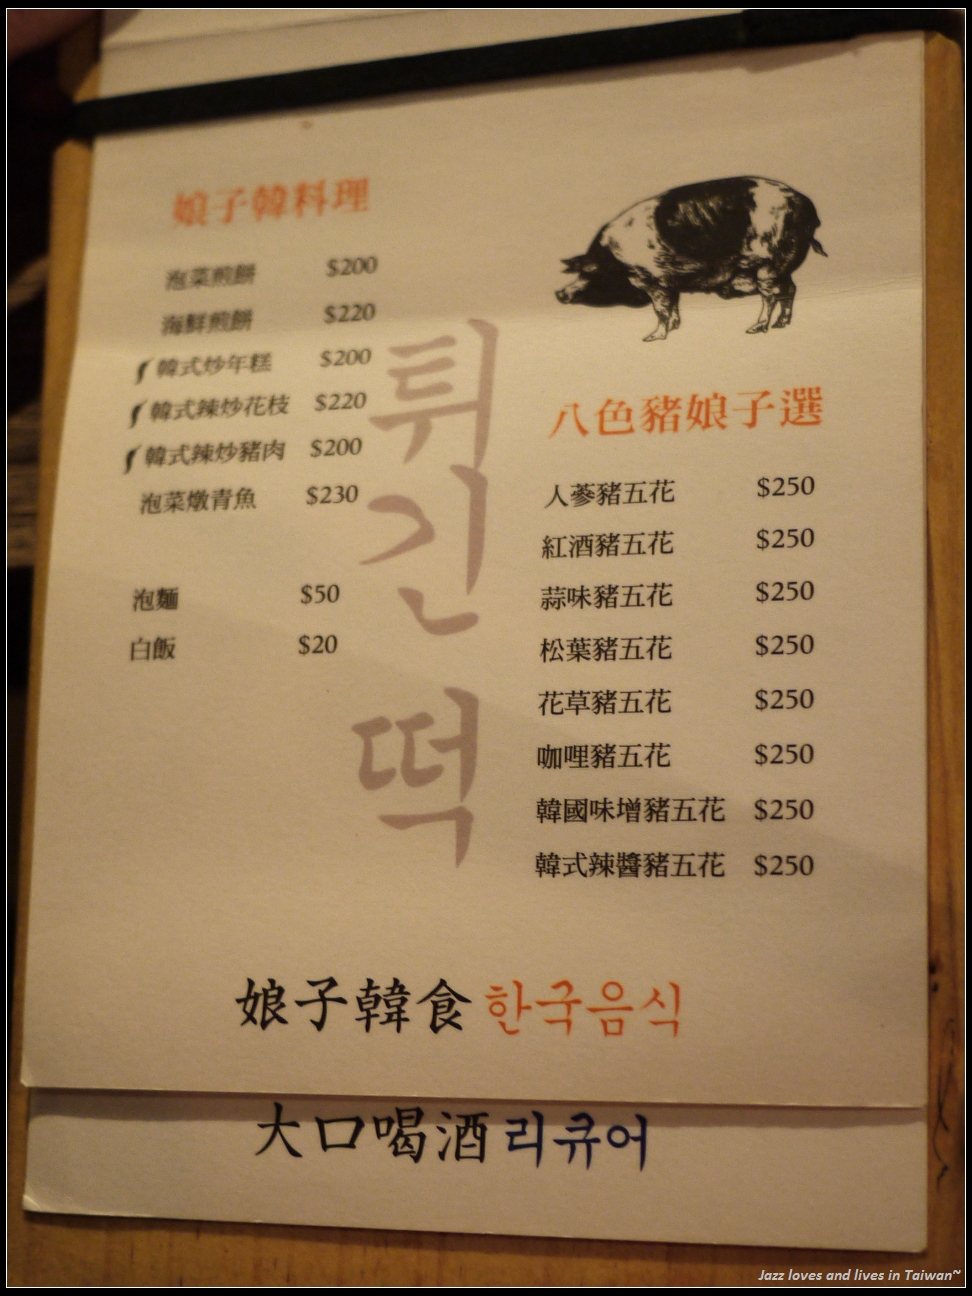 娘子韓料理
泡菜煎餅 $200
海鮮煎餅 $220
韓式炒年糕 $200
韓式辣炒花枝 $220
韓式辣炒豬肉 $200
泡菜燉青魚 $230
泡麵 $50
白飯 $20
튀긴 떡
八色豬娘子選
人蔘豬五花 $250
紅酒豬五花 $250
蒜味豬五花 $250
松葉豬五花 $250
花草豬五花 $250
咖哩豬五花 $250
韓國味增豬五花 $250
韓式辣醬豬五花 $250
娘子韓食 한국음식
大口喝酒 리큐어
Jazz loves and lives in Taiwan~